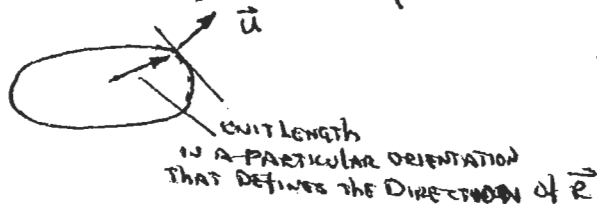 u
UNIT LENGTH
IN A PARTICULAR ORIENTATION
THAT DEFINES THE DIRECTION of R